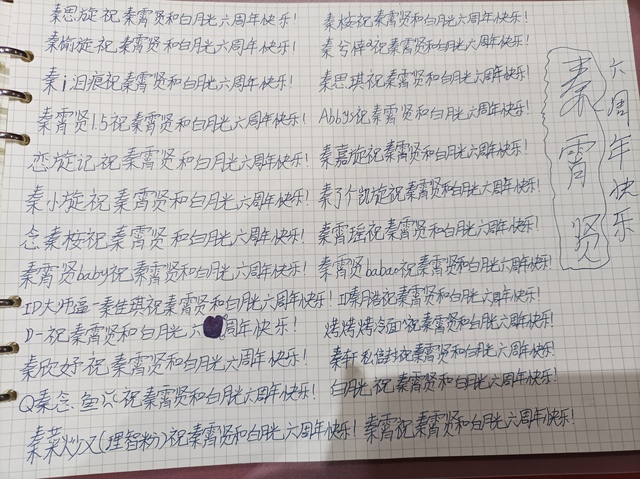 秦思旋祝秦霄贤和白月光六周年快乐!
秦偷旋祝秦霄贤和白月光六周年快乐!
秦i泪痕祝秦霄贤和白月光六周年快乐!
秦霄贤1.5祝秦霄贤和白月光六周年快乐!
恋旋记祝秦霄贤和白月光六周年快乐!
秦小旋祝秦霄贤和白月光六周年快乐!
念秦桉祝秦霄贤和白月光六周年快乐!
秦霄贤baby祝秦霄贤和白月光六周年快乐!
ID大师逼一秦佳琪祝秦霄贤和白月光六周年快乐!
D一祝秦霄贤和白月光六周年快乐!
秦欣妤祝秦霄贤和白月光六周年快乐!
Q秦念.鱼祝秦霄贤和白月光六周年快乐!
秦菜(理智粉)祝秦霄贤和白月光六周年快乐!
秦桉祝秦霄贤和白月光六周年快乐!
秦兮梓祝秦霄贤和白月光六周年快乐!
秦思琪祝秦霄贤和白月光六周年快乐!
Abbys祝秦霄贤和白月光六周年快乐!
秦嘉旋祝秦霄贤和白月光六周年快乐!
秦了仁凯旋祝秦霄贤和白月光六周年快乐!
秦霄瑶祝秦霄贤和白月光六周年快乐!
秦霄贤babao祝秦霄贤和白月光六周年快乐!
ID秦月皓祝秦霄贤和白月光六周年快乐!
烤烤烤冷面祝秦霄贤和白月光六周年快乐!
秦轩私信封祝秦霄贤和白月光六周年快乐!
白月光祝秦霄贤和白月光六周年快乐!
秦霄祝秦霄贤和白月光六周年快乐!
秦霄贤
六周年快乐